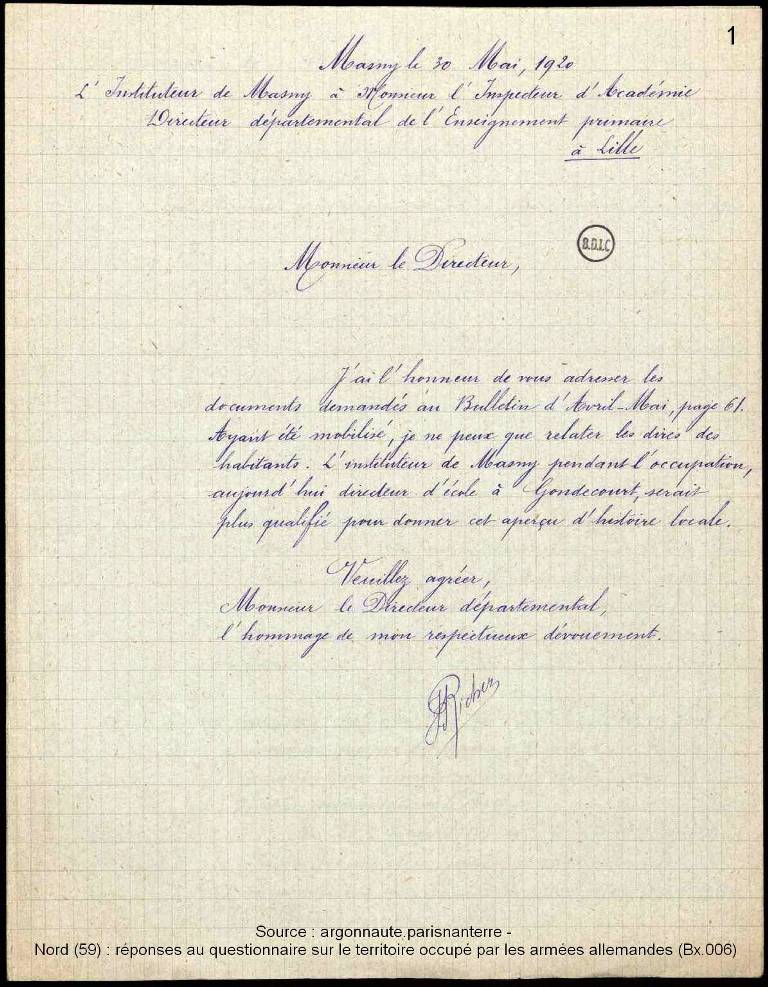 1
Masny le 30 Mai, 1920
L'Instituteur de Masny à Monsieur l'Inspecteur d'Académie
Directeur départemental de l'Enseignement primaire
à Lille
B.D.I.C
Monsieur le Directeur,
J'ai l'honneur de vous adresser les
documents demandés au Bulletin d'Avril-Mai, page 61.
Ayant été mobilisé, je ne peux que relater les dires des
habitants. L'instituteur de Masny pendant l'occupation,
aujourd'hui directeur d'école à Gondecourt, serait
plus qualifié pour donner cet aperçu d'histoire locale.
Veuillez agréer,
Monsieur le Directeur départemental,
l'hommage de mon respectueux dévouement.
Source : argonnaute.parisnanterre -
Nord (59) : réponses au questionnaire sur le territoire occupé par les armées allemandes (Bx.006)